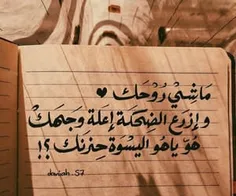 مَاشتي رُوْحَكْ ♥
وإزرع الضِحكة إعلة وَجهكْ
هوَ ياهو اليسوَة حِزنَكْ ؟!
daliah_57